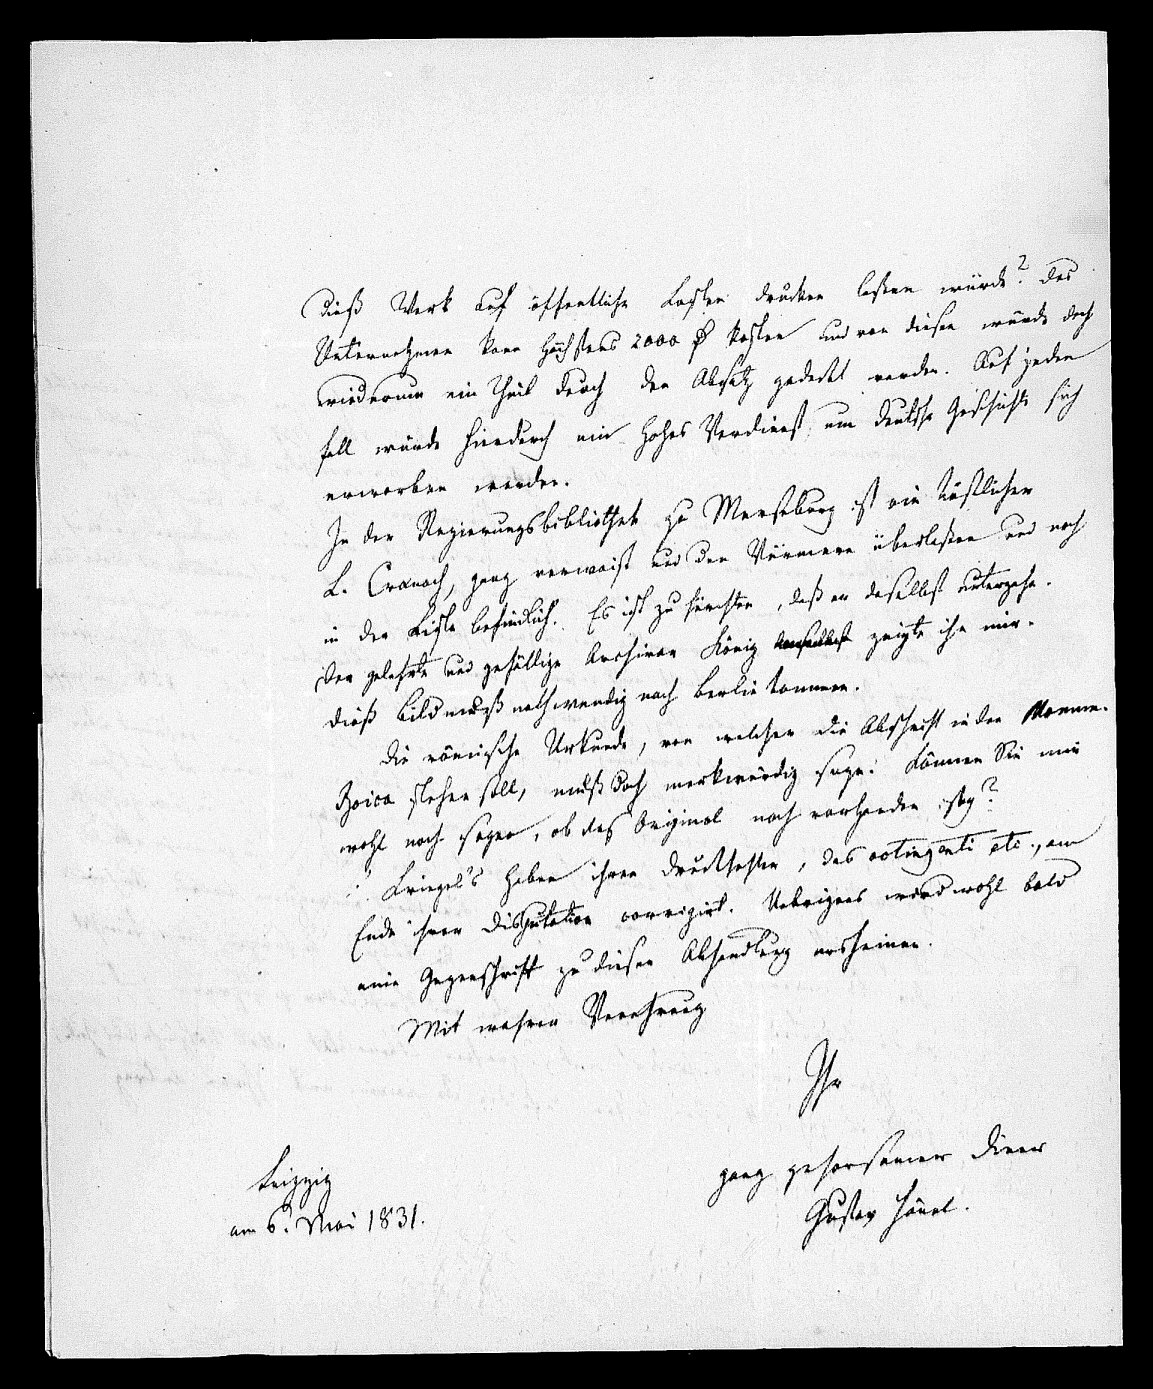 dieß Werk auf öffentliche Kosten drucken lassen würde? Das
Unternehmen kann höchstens 2000 ₰ kosten und von diesen würde doch
wiederum ein Theil durch den Absatz gedeckt werden. Auf jeden
fall würde hierdurch ein hohes Verdienst um deutsche Geschichte sich
erworben werden.
In der Regierungsbibliothek zu Merseburg ist ein köstlicher
L. Cranach, ganz verwaist und den Würmern überlassen und noch
in der Kiste befindlich. Es ist zu fürchten, daß er daselbst untergehe.
Der gelehrte und gefällige Archivar König zeigte ihn mir.
Dieß Bild muß nothwendig nach Berlin kommen.
Die römische Urkunde, von welcher die Abschrift in den Monum.
Boica stehen soll, muß doch merkwürdig seyn: Können Sie mir
wohl noch sagen, ob das Original noch vorhanden sey?
Kriegel's haben ihren Druckfehler, das octingenti etc., am
Ende ihrer Disputation corrigirt. Uebrigens wird wohl bald
eine Gegenschrift zu dieser Abhandlung erscheinen.
Mit wahrer Verehrung
Ihr
ganz gehorsamer Diener
Gustav Hänel.
Leipzig
am 6. Mai 1831.